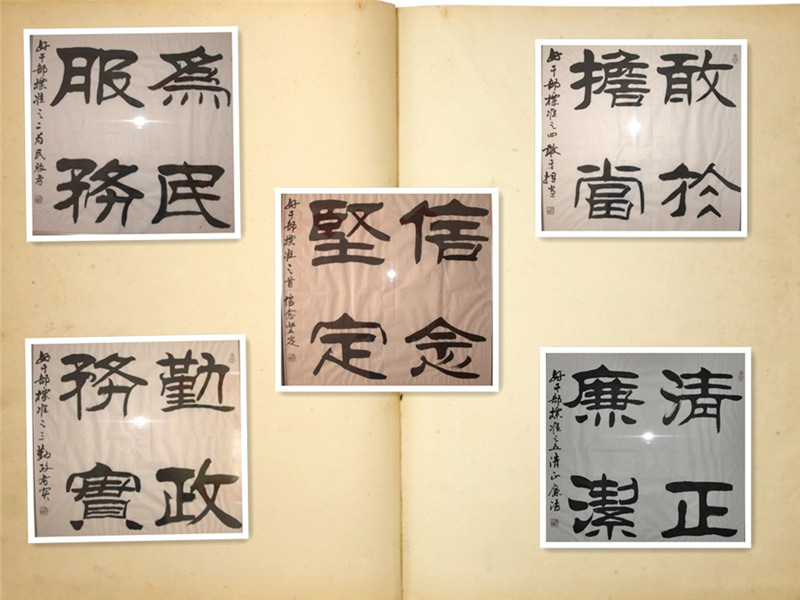 為民
服務
好干部標准之二 为民服务
敢於
擔當
好干部標准之四 敢于担当
信念
堅定
好干部標准之首 信念坚定
勤政
務實
好干部標准之三 勤政务实
清正
廉潔
好干部標准之五 清正廉洁